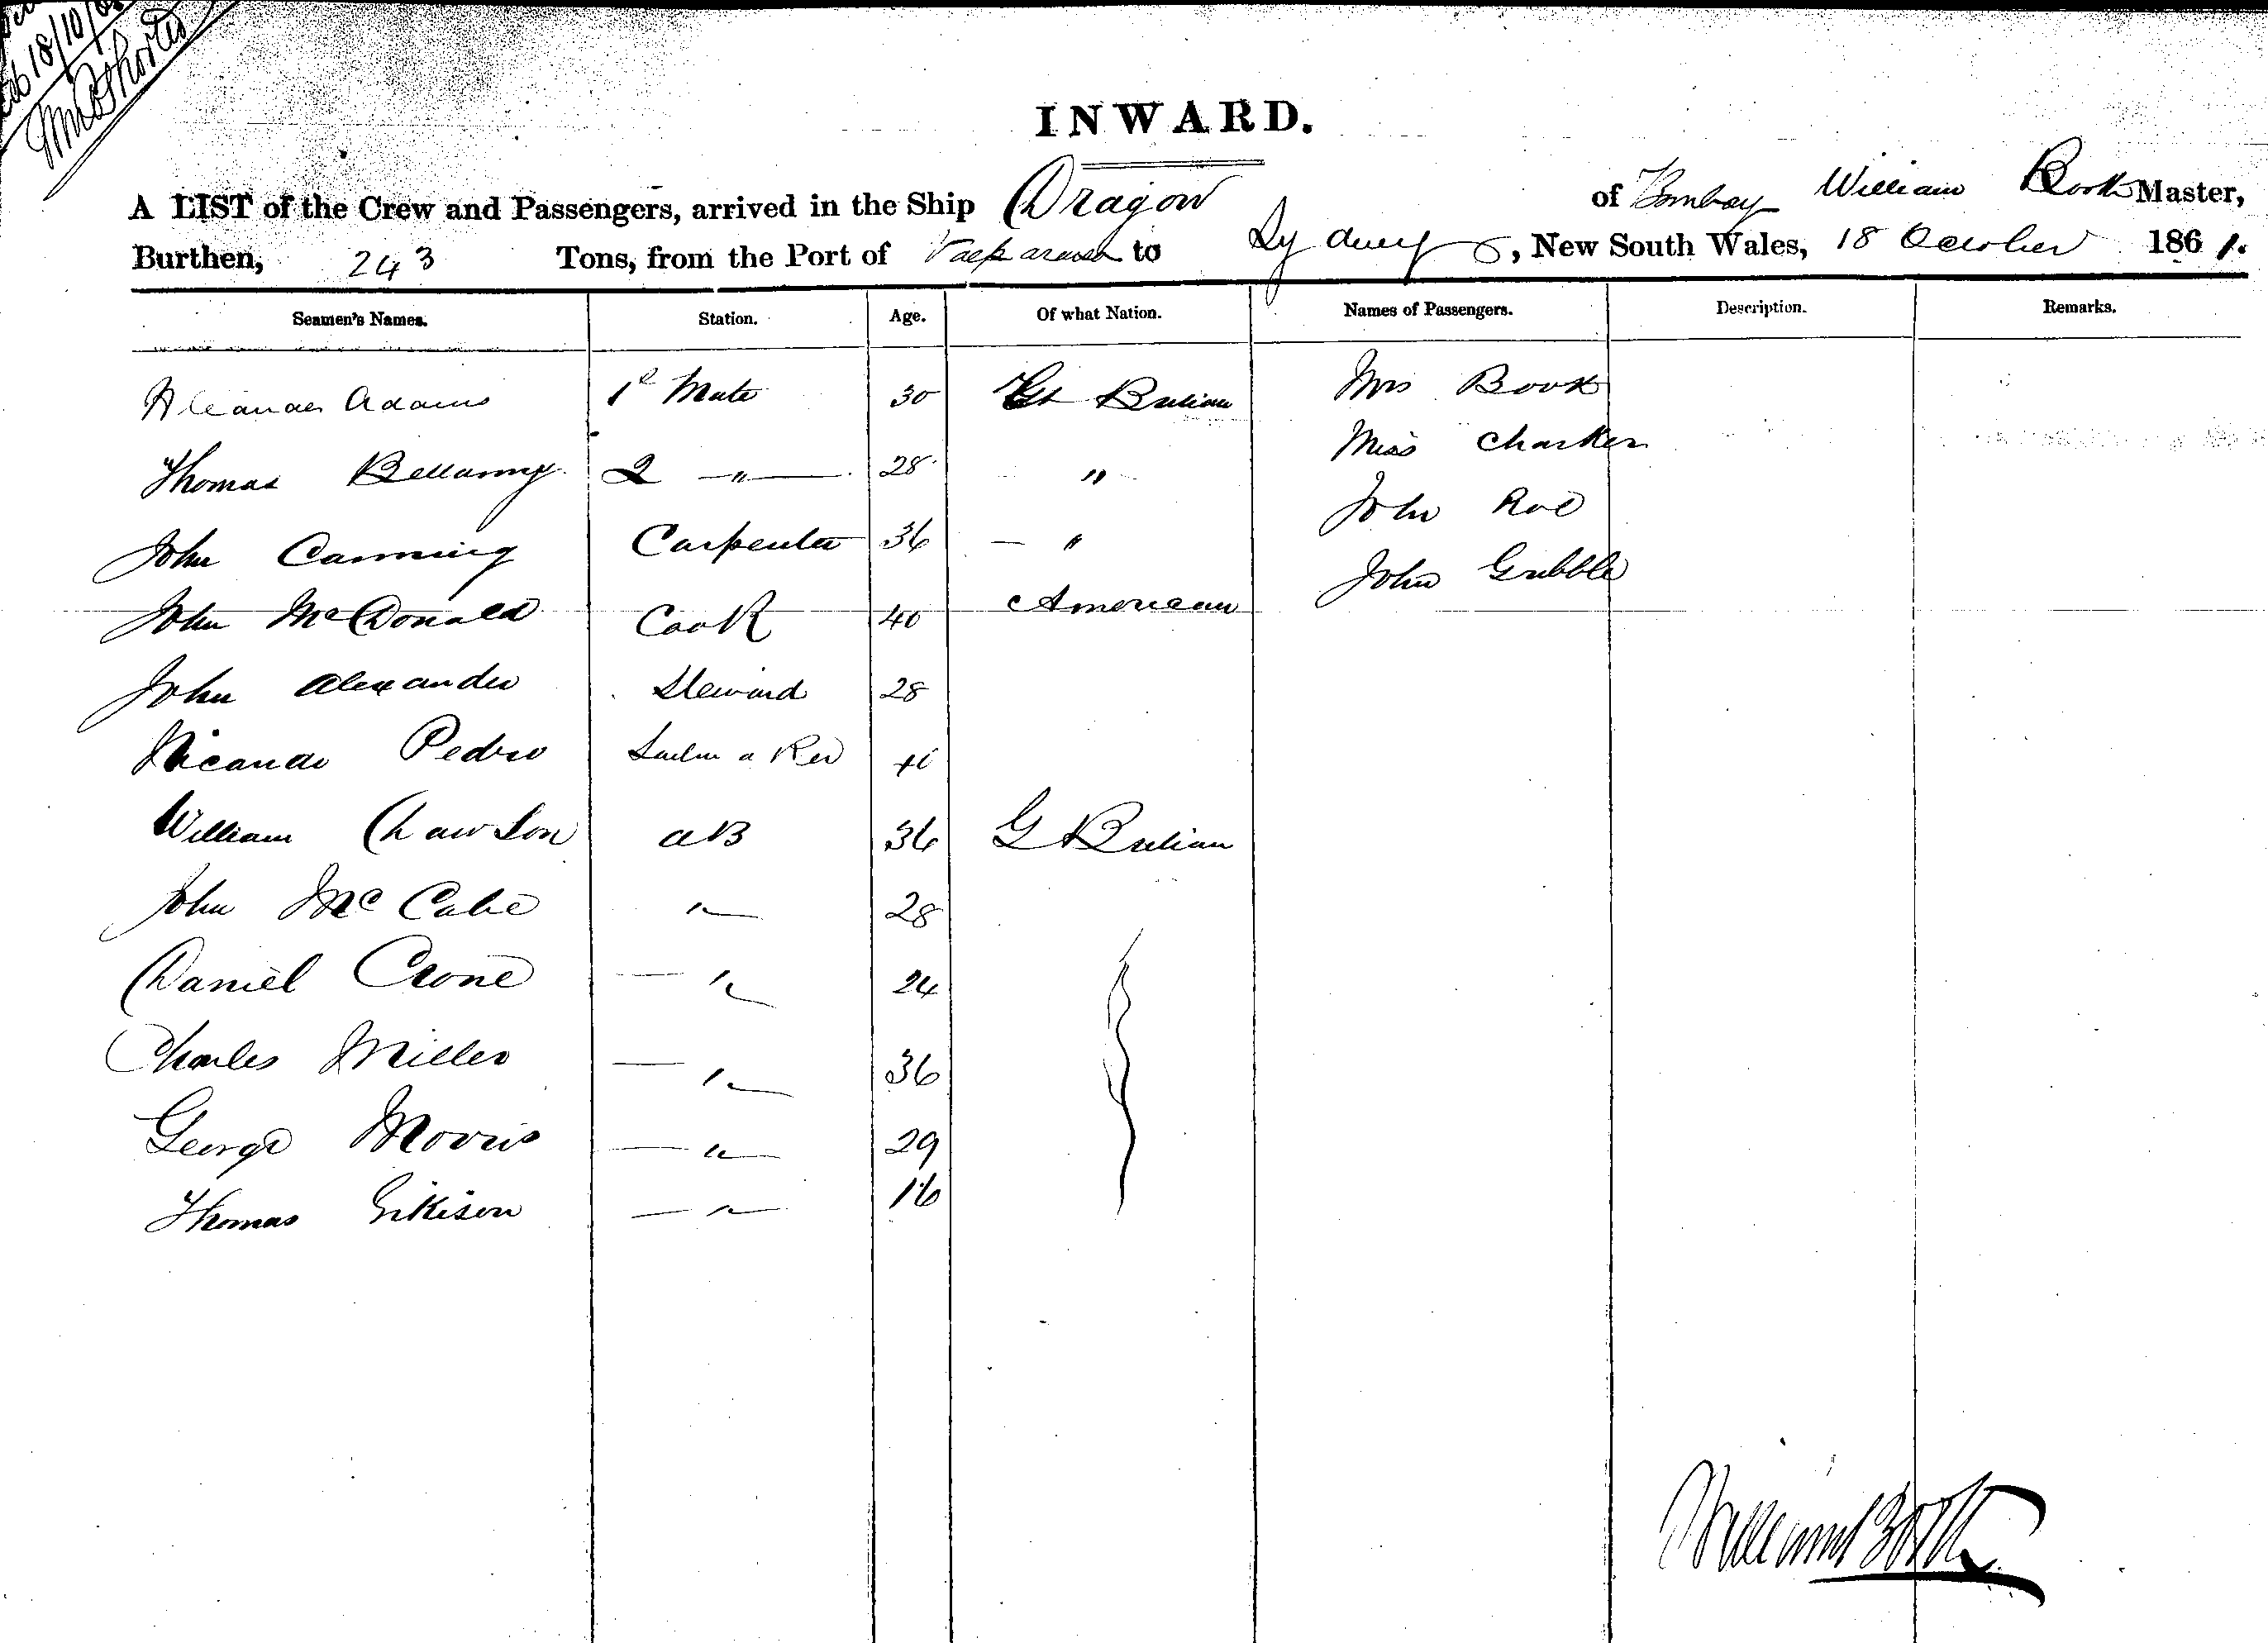 18/10/
INWARD.
A LIST of the Crew and Passengers, arrived in the Ship Dragon of Bombay William Book Master,
Burthen, 243 Tons, from the Port of Valparaiso to Sydney, New South Wales, 18 October 1861.
Seamen's Names. Station. Age. Of what Nation. Names of Passengers. Description. Remarks.
Alexander Adams 1st Mate 30 Gt Britian Mrs Book
Thomas Bellamy 2 " 28 " Miss Charker
John Canning Carpenter 36 " John Roe
John McDonald Cook 40 American John Gribble
John Alexander Steward 28
Pedro
William AB 36 G Britian
John McCabe " 28
Daniel Crone " 24
Charles Miller " 36
George Morris " 29
Thomas " 16
William Book